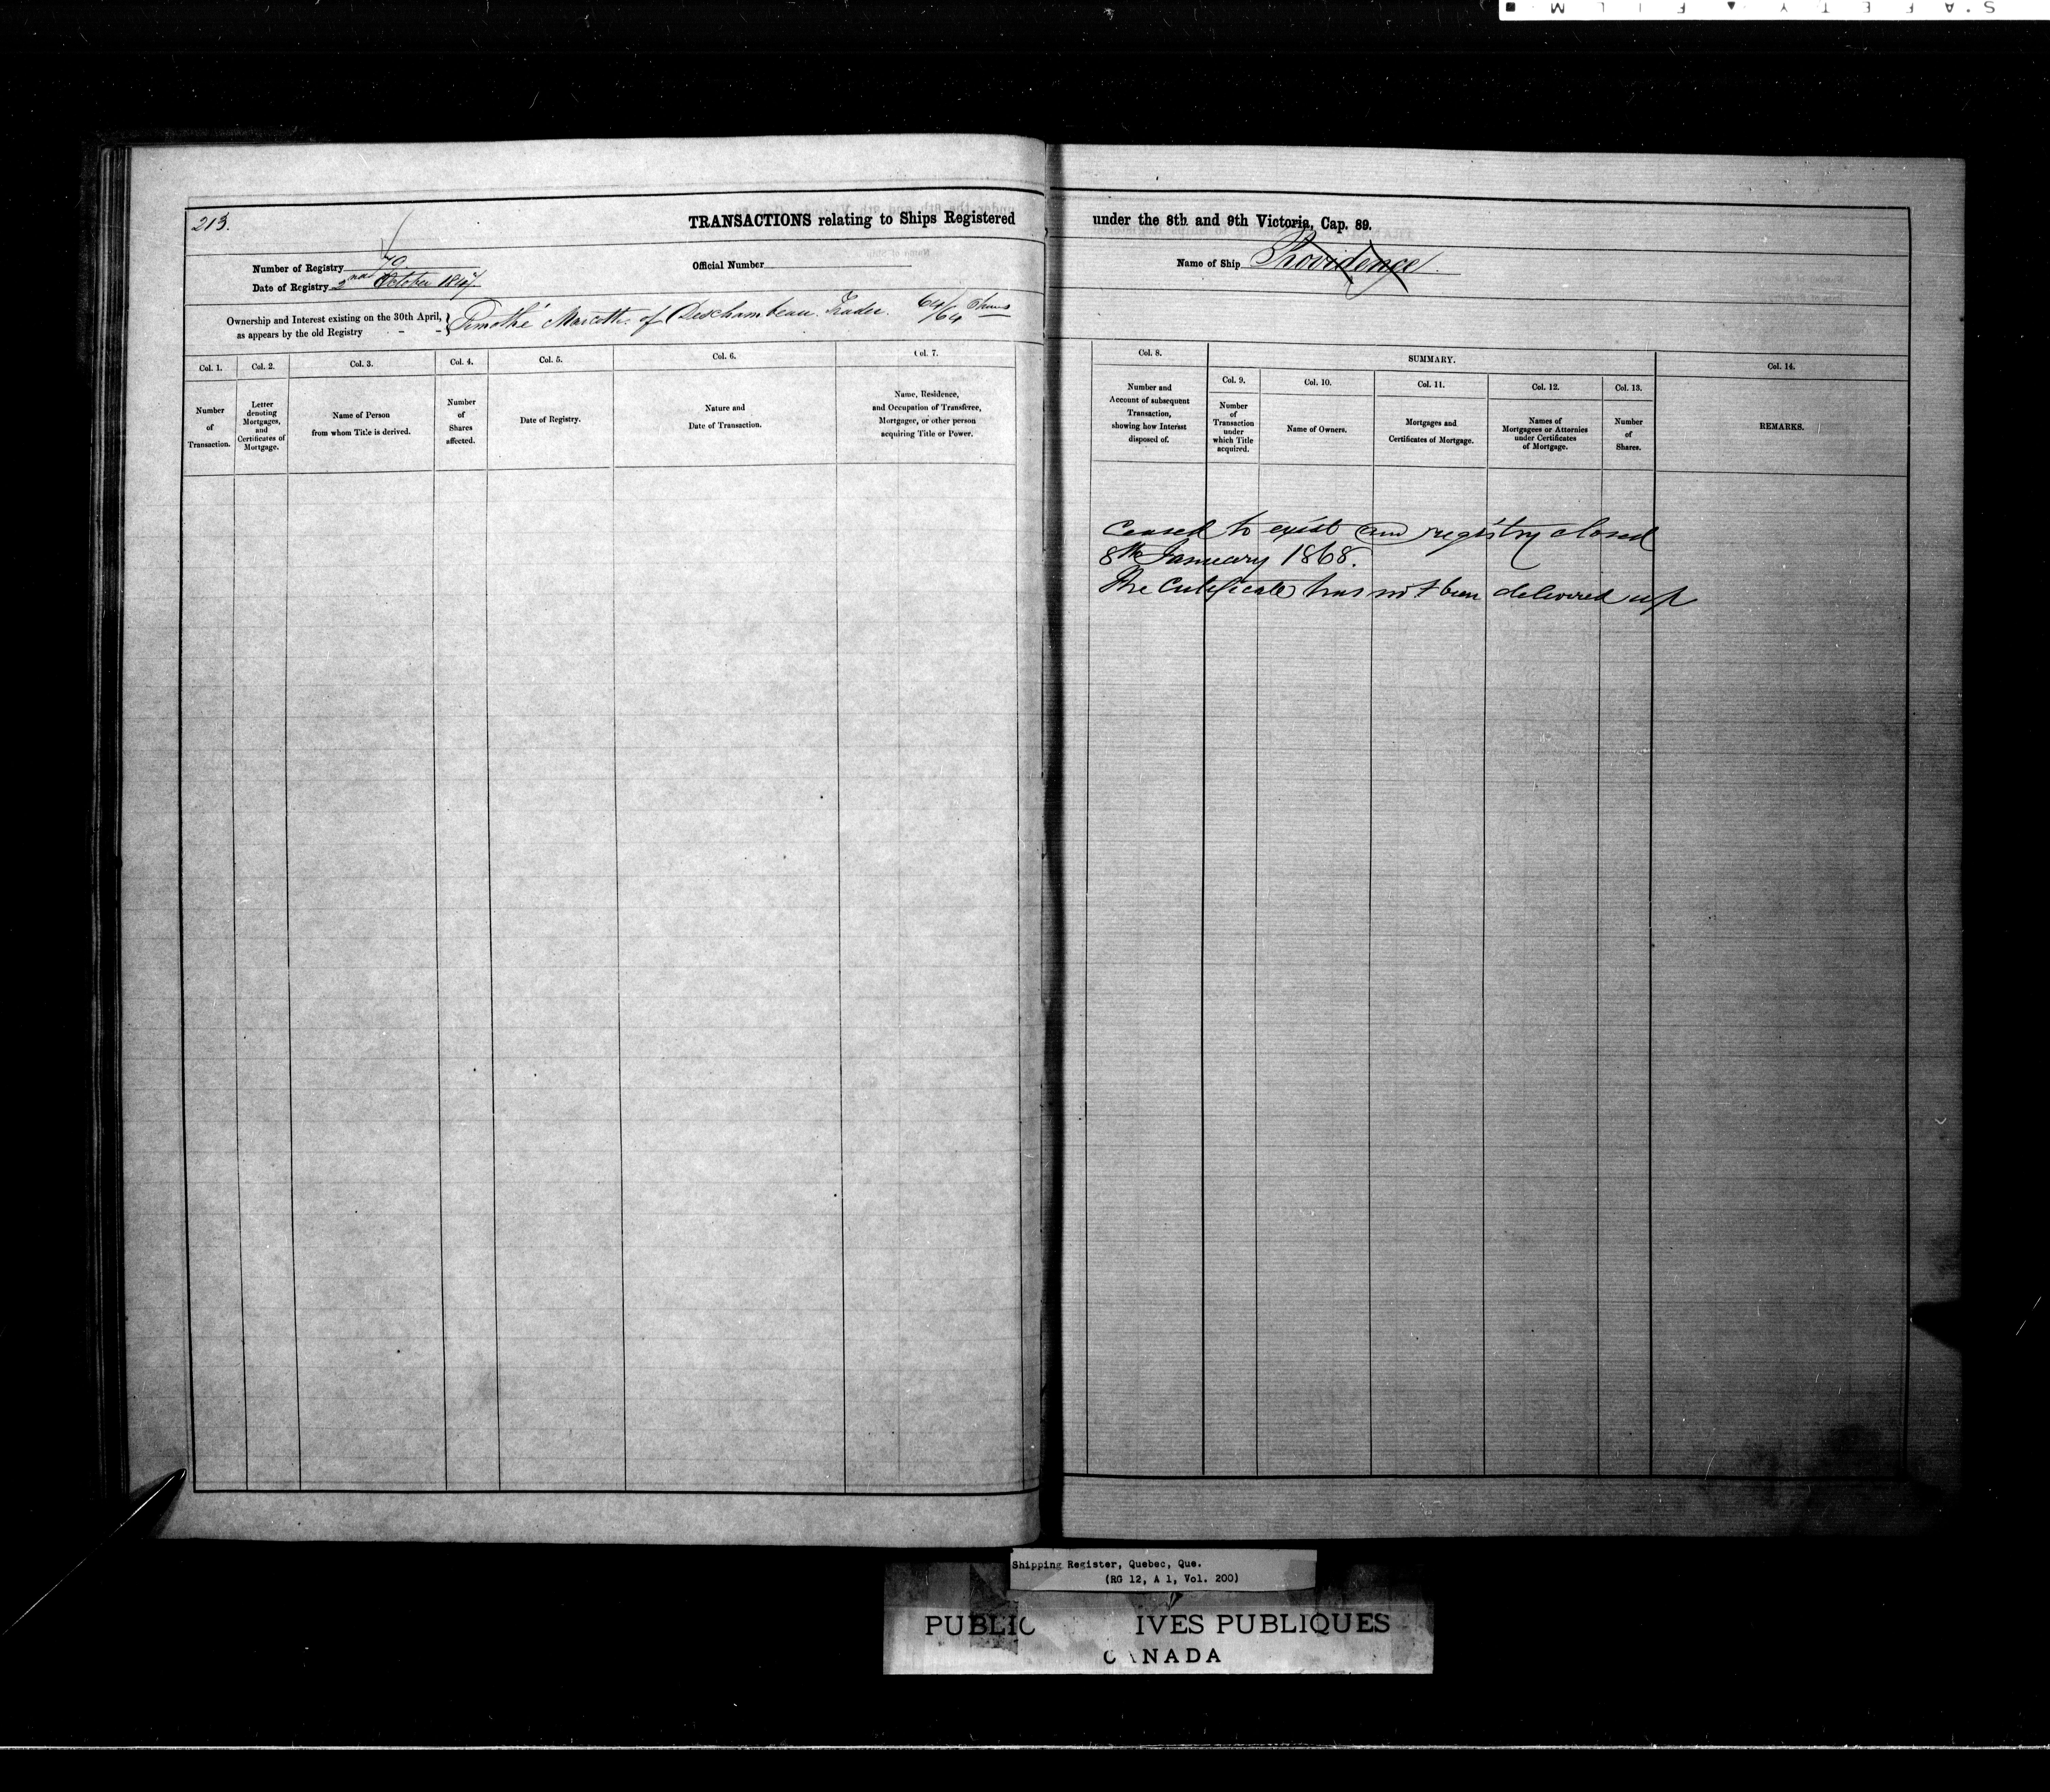 SAFETY ▲ FILM ■
213.
TRANSACTIONS relating to Ships Registered under the 8th and 9th Victoria, Cap. 89.
Number of Registry 79
Official Number
Name of Ship Providence
Date of Registry 2nd October 1847.
Ownership and Interest existing on the 30th April, as appears by the old Registry - - } Timothé Marcotte of Deschambeau. Trader. 64/64 Shares
Col. 1.
Number of Transaction.
Col. 2.
Letter denoting Mortgages, and Certificates of Mortgage.
Col. 3.
Name of Person from whom Title is derived.
Col. 4.
Number of Shares affected.
Col. 5.
Date of Registry.
Col. 6.
Nature and Date of Transaction.
Col. 7.
Name, Residence, and Occupation of Transferee, Mortgagee, or other person acquiring Title or Power.
Col. 8.
Number and Account of subsequent Transaction, showing how Interest disposed of.
SUMMARY.
Col. 9.
Number of Transaction under which Title acquired.
Col. 10.
Name of Owners.
Col. 11.
Mortgages and Certificates of Mortgage.
Col. 12.
Names of Mortgagees or Attornies under Certificates of Mortgage.
Col. 13.
Number of Shares.
Col. 14.
REMARKS.
Ceased to exist and registry closed
8th January 1868.
The Certificate has not been delivered up
Shipping Register, Quebec, Que.
(RG 12, A 1, Vol. 200)
PUBLIC IVES PUBLIQUES
CANADA